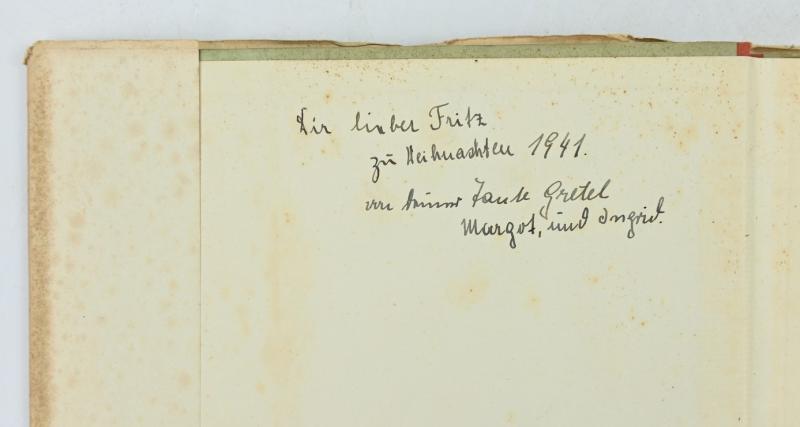 Dir lieber Fritz
zu Weihnachten 1941.
von deiner Tante Gretel
Margot, und Ingrid.